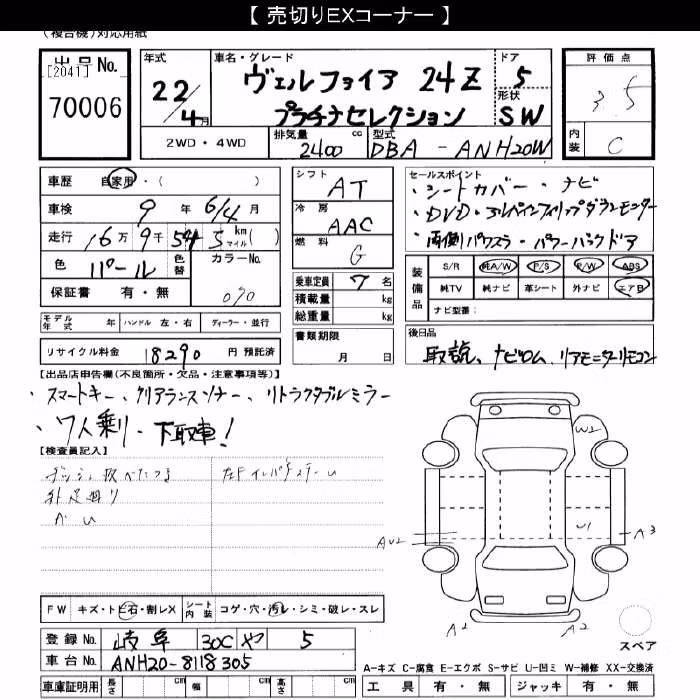 【 売切りEXコーナー 】
(複合機)対応用紙
出品No.
[2041]
70006
年式
22/4月
車名・グレード
ヴェルファイア 24Z
プラチナセレクション
ドア
5
形状
SW
評価点
3.5
内装
C
2WD・4WD
排気量
2400 cc
型式
DBA - ANH20W
車歴 自家用・( )
車検 9年 6/4月
走行 16万 9千 545 km マイル( )
色 パール 色替 カラーNo.
070
保証書 有・無
モデル年式 年 ハンドル 左・右 ディーラー・並行
リサイクル料金 18290 円 預託済
シフト
AT
冷房
AAC
燃料
G
乗車定員 7 名
積載量 kg
総重量 kg
書類期限
月 日
セールスポイント
・シートカバー・ナビ
・DVD・アルパインフリップダウンモニター
・両側パワスラ・パワーバックドア
装備品
S/R 純A/W P/S P/W ABS
純TV 純ナビ 革シート 外ナビ エアB
ナビ型番:
後日品
取説、ナビロム、リアモニターリモコン
【出品店申告欄(不良箇所・欠品・注意事項等)】
・スマートキー、クリアランスソナー、リトラクタブルミラー
・7人乗り・下取車!
【検査員記入】
外足廻り
W2
U1
AU2
A3
A2
A2
スペア
FW キズ・トビ石・割レX シート内装 コゲ・穴・汚レ・シミ・破レ・スレ
登録No. 岐阜 300 や 5
車台No. ANH20-8118305
車庫証明用 長さ cm 幅 cm 高さ cm
A-キズ C-腐食 E-エクボ S-サビ U-凹ミ W-補修 XX-交換済
工具 有・無 ジャッキ 有・無